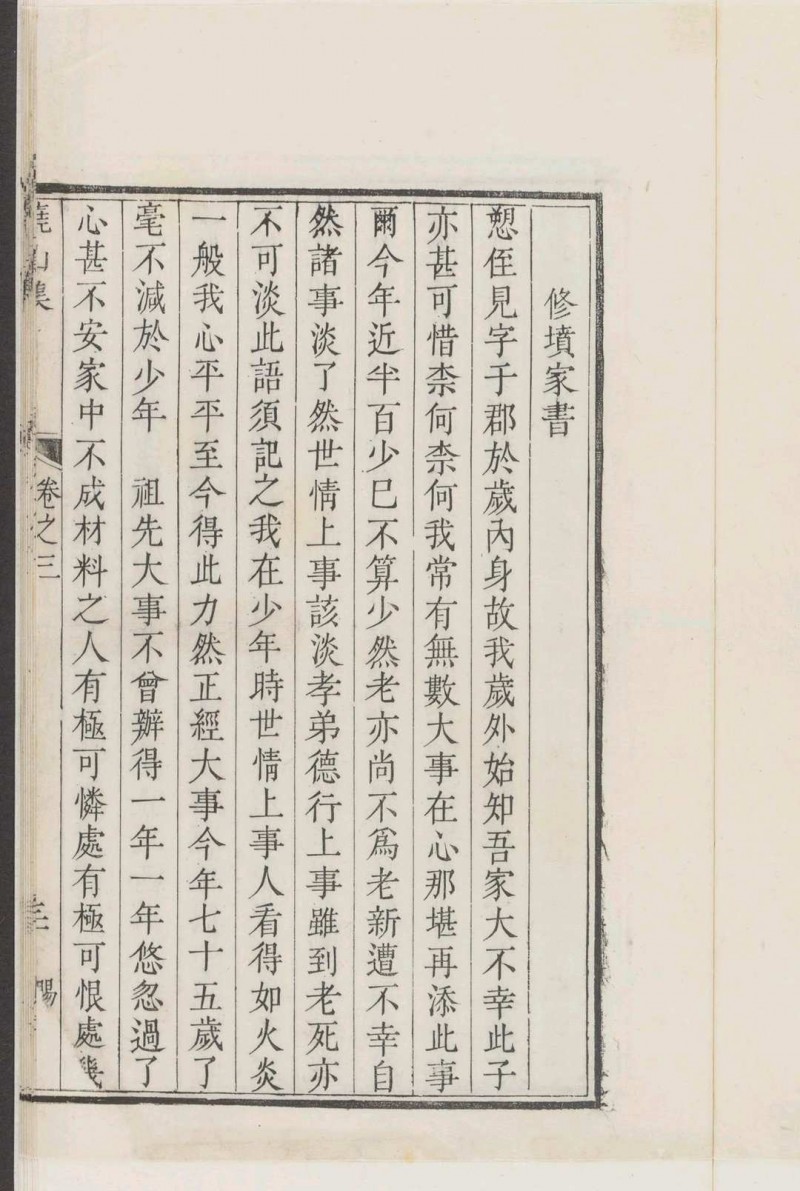 修墳家書
恕侄見字于郡於歲內身故我歲外始知吾家大不幸此子
亦甚可惜柰何柰何我常有無數大事在心那堪再添此事
爾今年近半百少巳不算少然老亦尚不爲老新遭不幸自
然諸事淡了然世情上事該淡孝弟德行上事雖到老死亦
不可淡此語須記之我在少年時世情上事人看得如火炎
一般我心平平至今得此力然正經大事今年七十五歲了
毫不減於少年　祖先大事不曾辦得一年一年悠忽過了
心甚不安家中不成材料之人有極可憐處有極可恨處幾
山集
卷之三